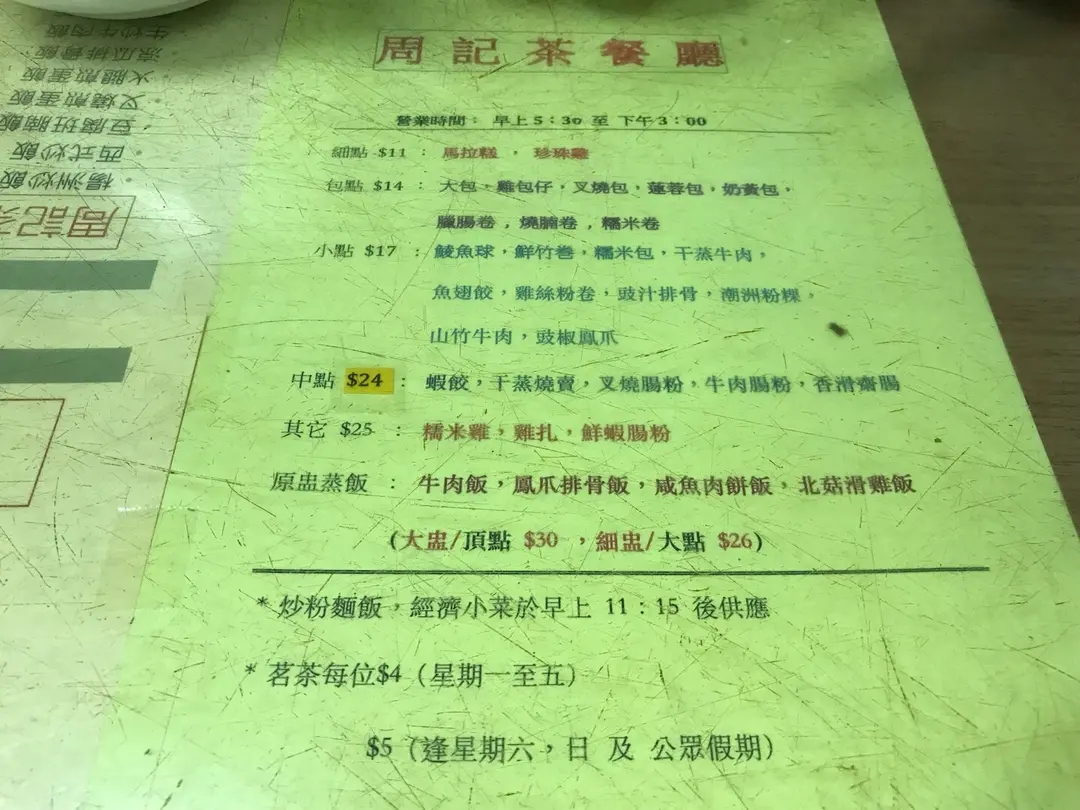 周記茶餐廳
營業時間： 早上5：30 至 下午3：00
細點 $11 ： 馬拉糕 ， 珍珠雞
包點 $14 ： 大包，雞包仔，叉燒包，蓮蓉包，奶黃包，
臘腸卷，燒腩卷，糯米卷
小點 $17 ： 鯪魚球，鮮竹卷，糯米包，干蒸牛肉，
魚翅餃，雞絲粉卷，豉汁排骨，潮洲粉粿，
山竹牛肉，豉椒鳳爪
中點 $24 ： 蝦餃，干蒸燒賣，叉燒腸粉，牛肉腸粉，香滑齋腸
其它 $25 ： 糯米雞，雞扎，鮮蝦腸粉
原盅蒸飯 ： 牛肉飯，鳳爪排骨飯，咸魚肉餅飯，北菇滑雞飯
(大盅/頂點 $30 ，細盅/大點 $26)
* 炒粉麵飯，經濟小菜於早上 11：15 後供應
* 茗茶每位$4（星期一至五）
$5（逢星期六，日 及 公眾假期）
周記
楊洲炒飯
西式炒飯
豆腐班腩飯
叉燒煎蛋飯
火腿煎蛋飯
涼瓜排骨飯
生炒牛肉飯